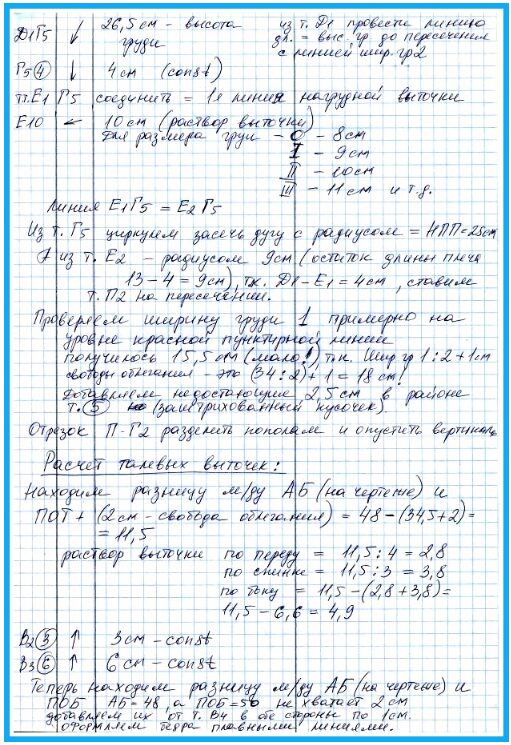 Д1Г5 ↓ 26,5 см - высота груди
из т. Д1 провести линию
дл. = выс. гр до пересечения
с линией шир. гр 2
Г5 4 ↓ 4 см (const)
тт. Е1 Г5 соединить = 1я линия нагрудной выточки
Е10 ← 10 см (раствор выточки)
для размера груди - 0 - 8 см
I - 9 см
II - 10 см
III - 11 см и т.д.
Линия Е1Г5 = Е2Г5
Из т. Г5 циркулем засечь дугу с радиусом = НПП = 25 см
из т. Е2 - радиусом 9 см (остаток длины плеча
13 - 4 = 9 см), т.к. Д1 - Е1 = 4 см, ставим
т. П2 на пересечении.
Проверяем ширину груди 1 примерно на
уровне красной пунктирной линии
получилось 15,5 см (мало!), т.к. Шир гр 1 : 2 + 1 см
свободы облегания - это (34 : 2) + 1 = 18 см!
Добавляем недостающие 2,5 см в районе
т. 5 (заштрихованный кусочек)
Отрезок П-Г2 разделить пополам и опустить вертикаль
Расчет талевых выточек:
Находим разницу м/ду АБ (на чертеже) и
ПОТ + (2 см - свобода облегания) = 48 - (34,5 + 2) =
= 11,5
раствор выточки по переду = 11,5 : 4 = 2,8
по спинке = 11,5 : 3 = 3,8
по боку = 11,5 - (2,8 + 3,8) =
11,5 - 6,6 = 4,9
В2 3 ↑ 3 см - const
В3 6 ↑ 6 см - const
Теперь находим разницу м/ду АБ (на чертеже) и
ПОБ АБ = 48, а ПОБ = 50 не хватает 2 см
добавляем их от т. В4 в обе стороны по 1 см.
Оформляем бедра плавными линиями.